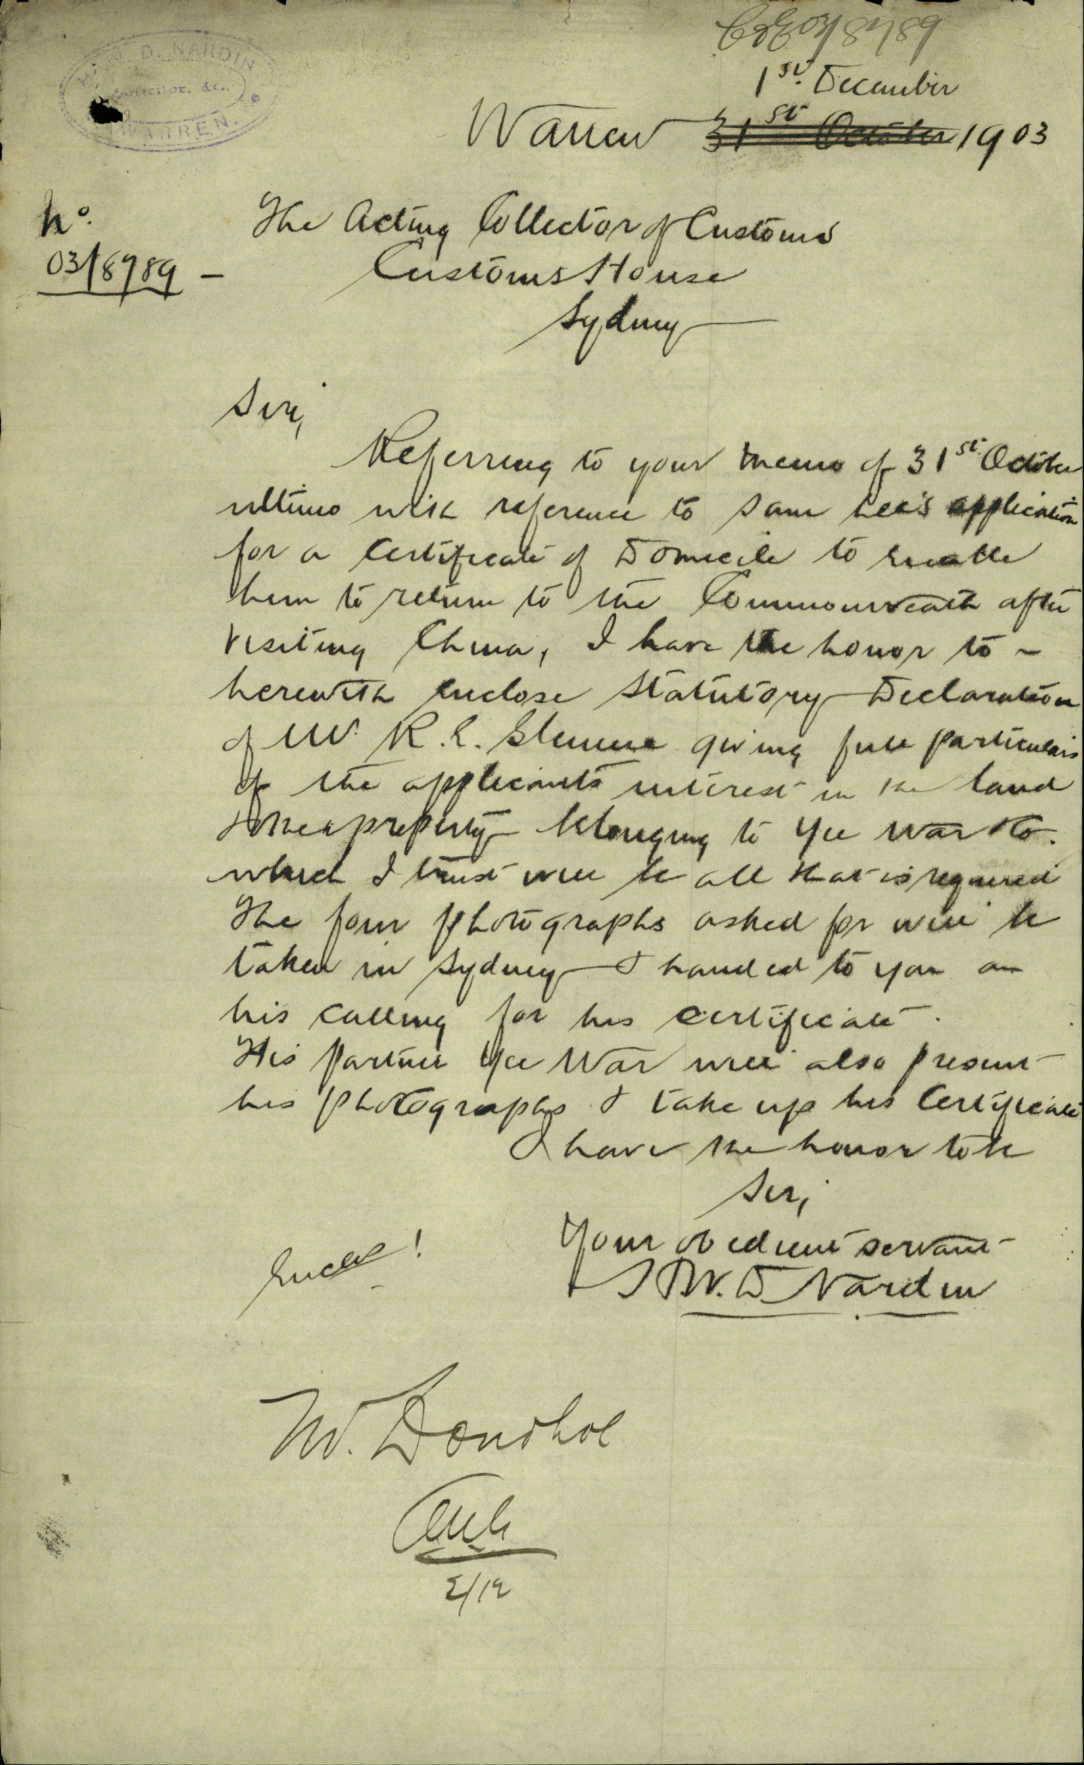 C&E 03/8989
D. NARDIN
Solicitor, &c.,
WARREN.
1st. December
Warren 31st October 1903
No.
03/8989 -
The Acting Collector of Customs
Customs House
Sydney
Sir,
Referring to your memo of 31st October
ultimo with reference to Sam Lee's application
for a Certificate of Domicile to enable
him to return to the Commonwealth after
visiting China, I have the honor to -
herewith enclose Statutory Declaration
of Mr. R. E. giving full particulars
of the applicants interest in the land
& property belonging to Yee War & Co.
which I trust will be all that is required
The four photographs asked for will be
taken in Sydney & handed to you on
his calling for his certificate.
His partner Yee War will also present
his photographs & take up his Certificate
I have the honor to be
Sir,
Your obedient servant
W. D. Nardin
Encl !
Mr. Donohoe
2/12